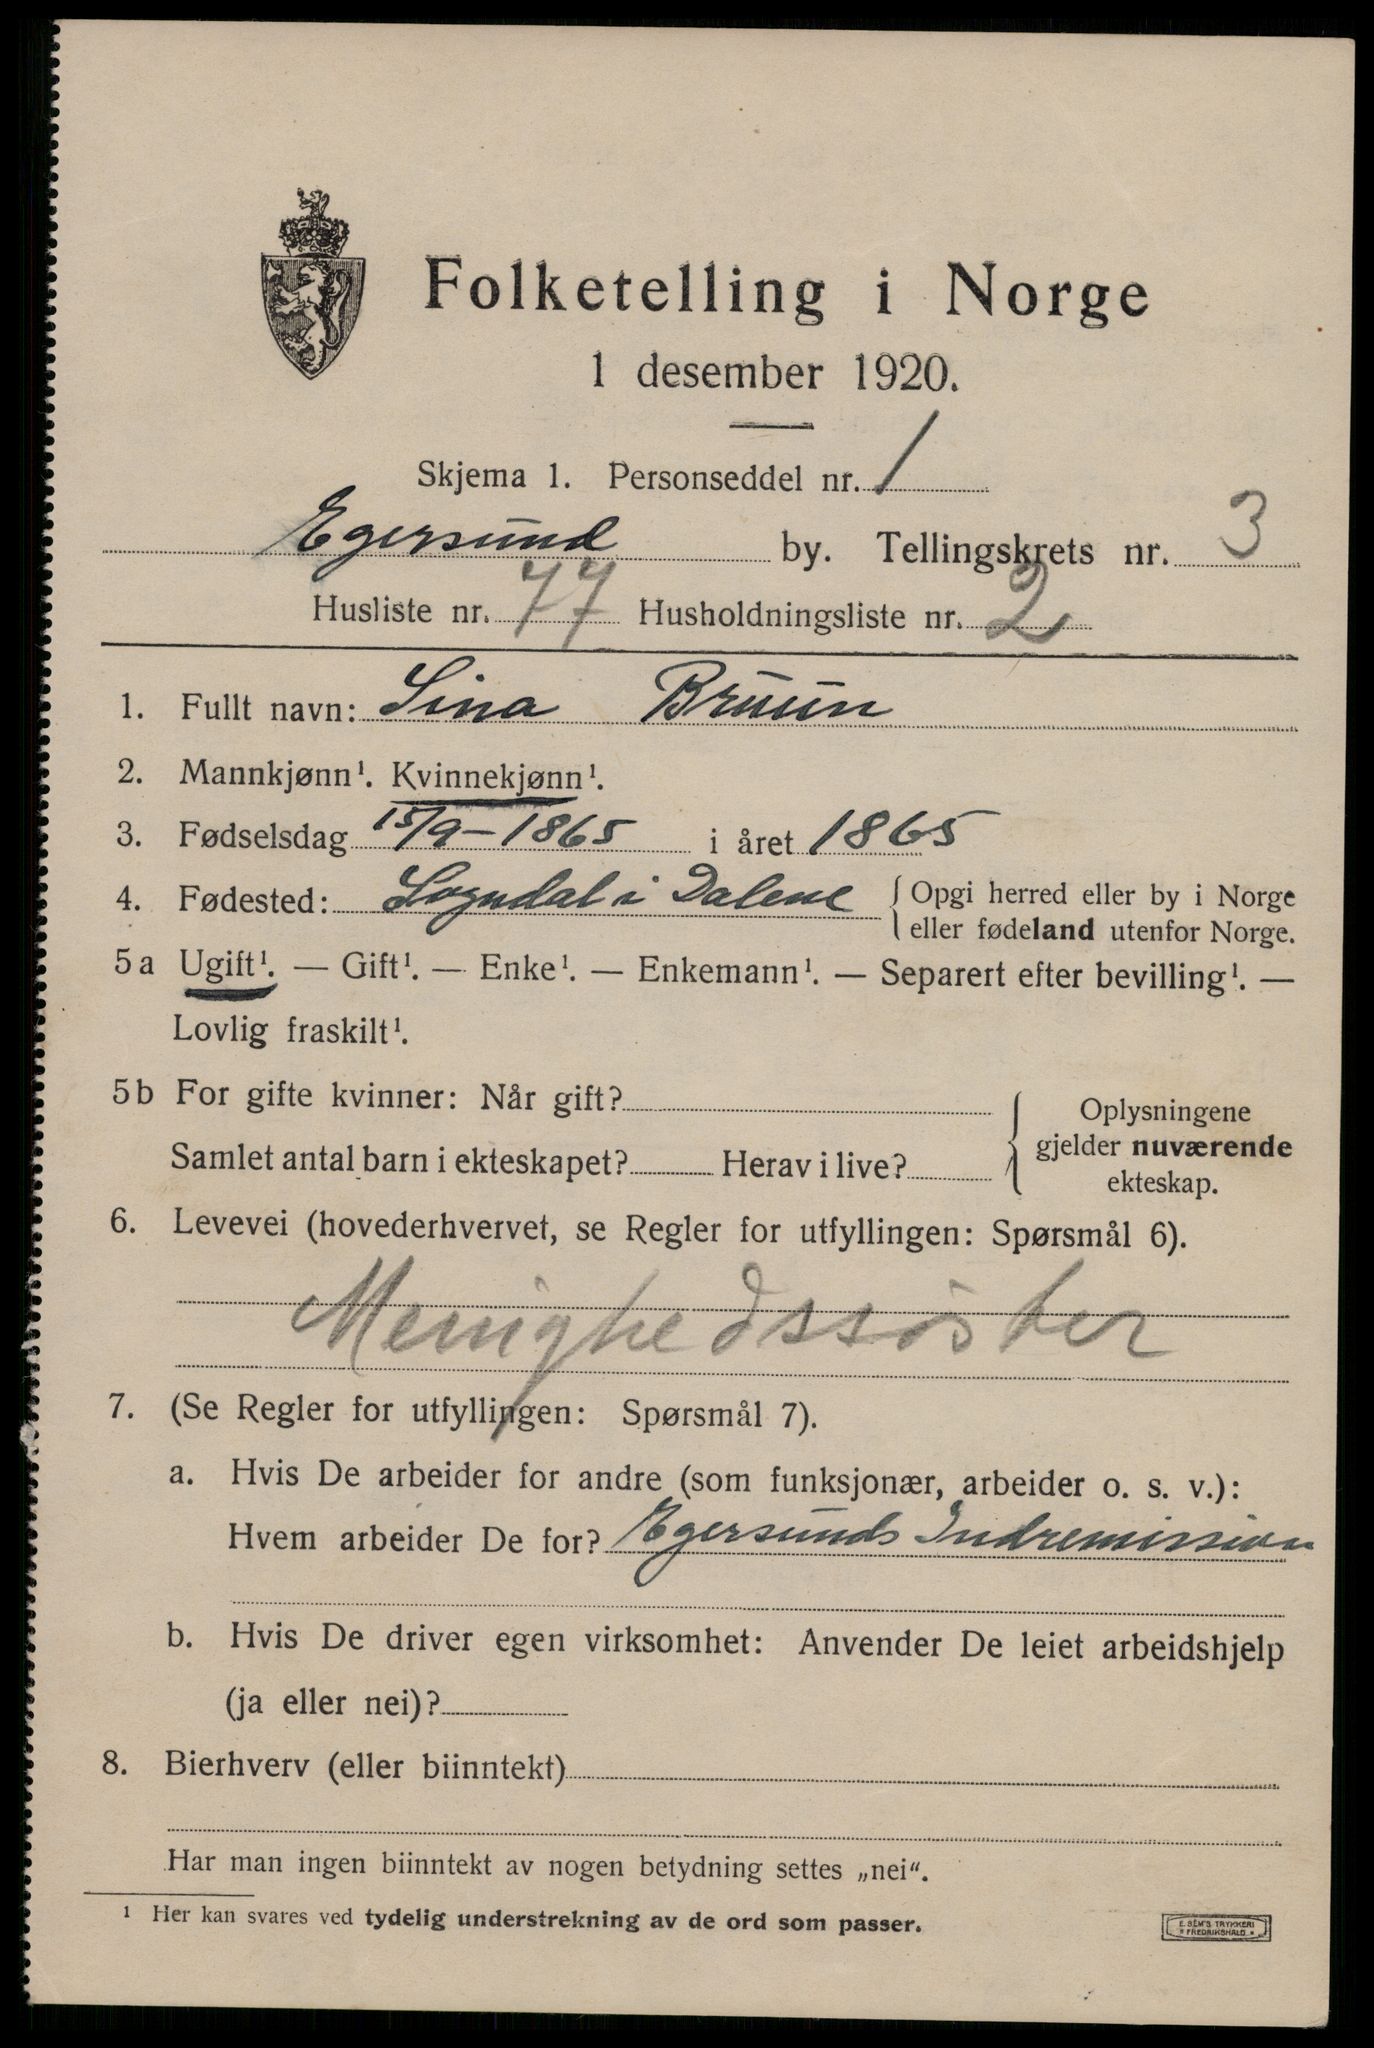 Folketelling i Norge
1 desember 1920.
Skjema 1. Personseddel nr. 1
Egersund by. Tellingskrets nr. 3
Husliste nr. 77 Husholdningsliste nr. 2
1. Fullt navn: Sina Bruun
2. Mannkjønn¹. Kvinnekjønn¹.
3. Fødselsdag 15/9-1865 i året 1865
4. Fødested: Sogndal i Dalene { Opgi herred eller by i Norge
eller fødeland utenfor Norge.
5a Ugift¹. — Gift¹. — Enke¹. — Enkemann¹. — Separert efter bevilling¹. —
Lovlig fraskilt¹.
5b For gifte kvinner: Når gift?
Samlet antal barn i ekteskapet? Herav i live?
{ Oplysningene
gjelder nuværende
ekteskap.
6. Levevei (hovederhvervet, se Regler for utfyllingen: Spørsmål 6).
Menighedssøster
7. (Se Regler for utfyllingen: Spørsmål 7).
a. Hvis De arbeider for andre (som funksjonær, arbeider o. s. v.):
Hvem arbeider De for? Egersunds Indremission
b. Hvis De driver egen virksomhet: Anvender De leiet arbeidshjelp
(ja eller nei)?
8. Bierhverv (eller biinntekt)
Har man ingen biinntekt av nogen betydning settes „nei“.
¹ Her kan svares ved tydelig understrekning av de ord som passer.
E. SEM'S TRYKKERI
FREDRIKSHALD